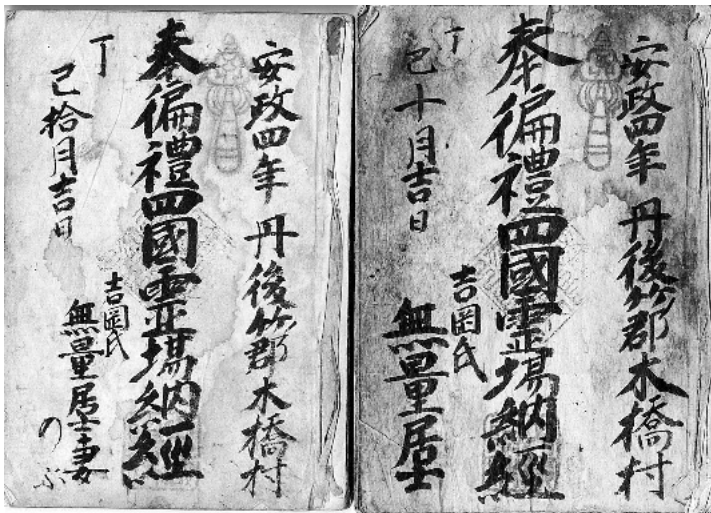 安政四年 丹後竹郡木橋村
奉徧禮四國霊場納經
丁
巳拾月吉日
吉岡氏
無量居士妻
のぶ
安政四年 丹後竹郡木橋村
奉徧禮四國霊場納經
丁
巳十月吉日
吉岡氏
無量居士